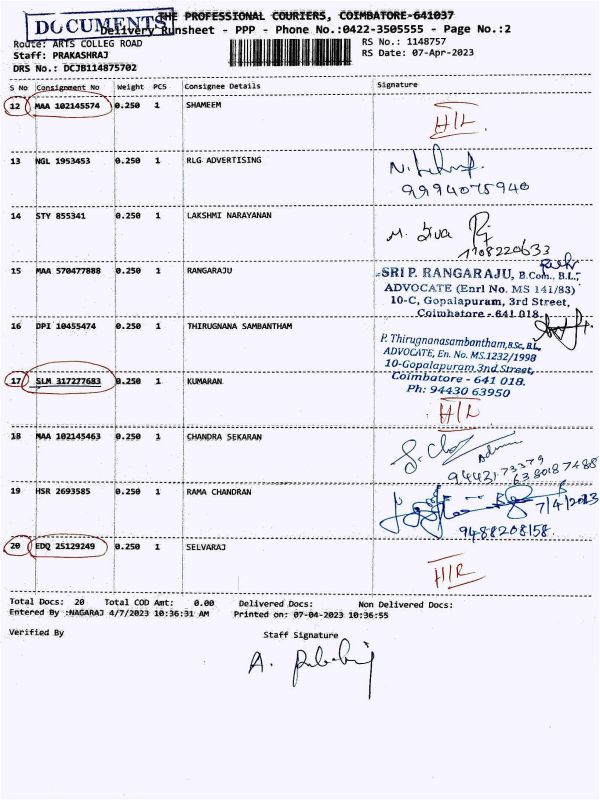 DOCUMENTS
THE PROFESSIONAL COURIERS, COIMBATORE-641037
Delivery Runsheet - PPP - Phone No.:0422-3505555 - Page No.:2
Route: ARTS COLLEG ROAD
RS No.: 1148757
Staff: PRAKASHRAJ
RS Date: 07-Apr-2023
DRS No.: DCJB114875702
S No Consignment No Weight PCS Consignee Details Signature
12 MAA 102145574 0.250 1 SHAMEEM
13 NGL 1953453 0.250 1 RLG ADVERTISING
9994075940
14 STY 855341 0.250 1 LAKSHMI NARAYANAN
M. Siva
1108220633
15 MAA 570477888 0.250 1 RANGARAJU
SRI P. RANGARAJU, B.Com., B.L.,
ADVOCATE (Enrl No. MS 141/83)
10-C, Gopalapuram, 3rd Street,
Coimbatore - 641 018.
16 DPI 10455474 0.250 1 THIRUGNANA SAMBANTHAM
P. Thirugnanasambantham, B.Sc, B.L,
ADVOCATE, En. No. MS.1232/1998
10-Gopalapuram, 3nd Street,
Coimbatore - 641 018.
Ph: 94430 63950
17 SLM 317277683 0.250 1 KUMARAN
18 MAA 102145463 0.250 1 CHANDRA SEKARAN
Admin
9442173379
6380187488
19 HSR 2693585 0.250 1 RAMA CHANDRAN
7/4/2023
9488208158
20 EDQ 25129249 0.250 1 SELVARAJ
Total Docs: 20 Total COD Amt: 0.00 Delivered Docs: Non Delivered Docs:
Entered By :NAGARAJ 4/7/2023 10:36:31 AM Printed on: 07-04-2023 10:36:55
Verified By Staff Signature